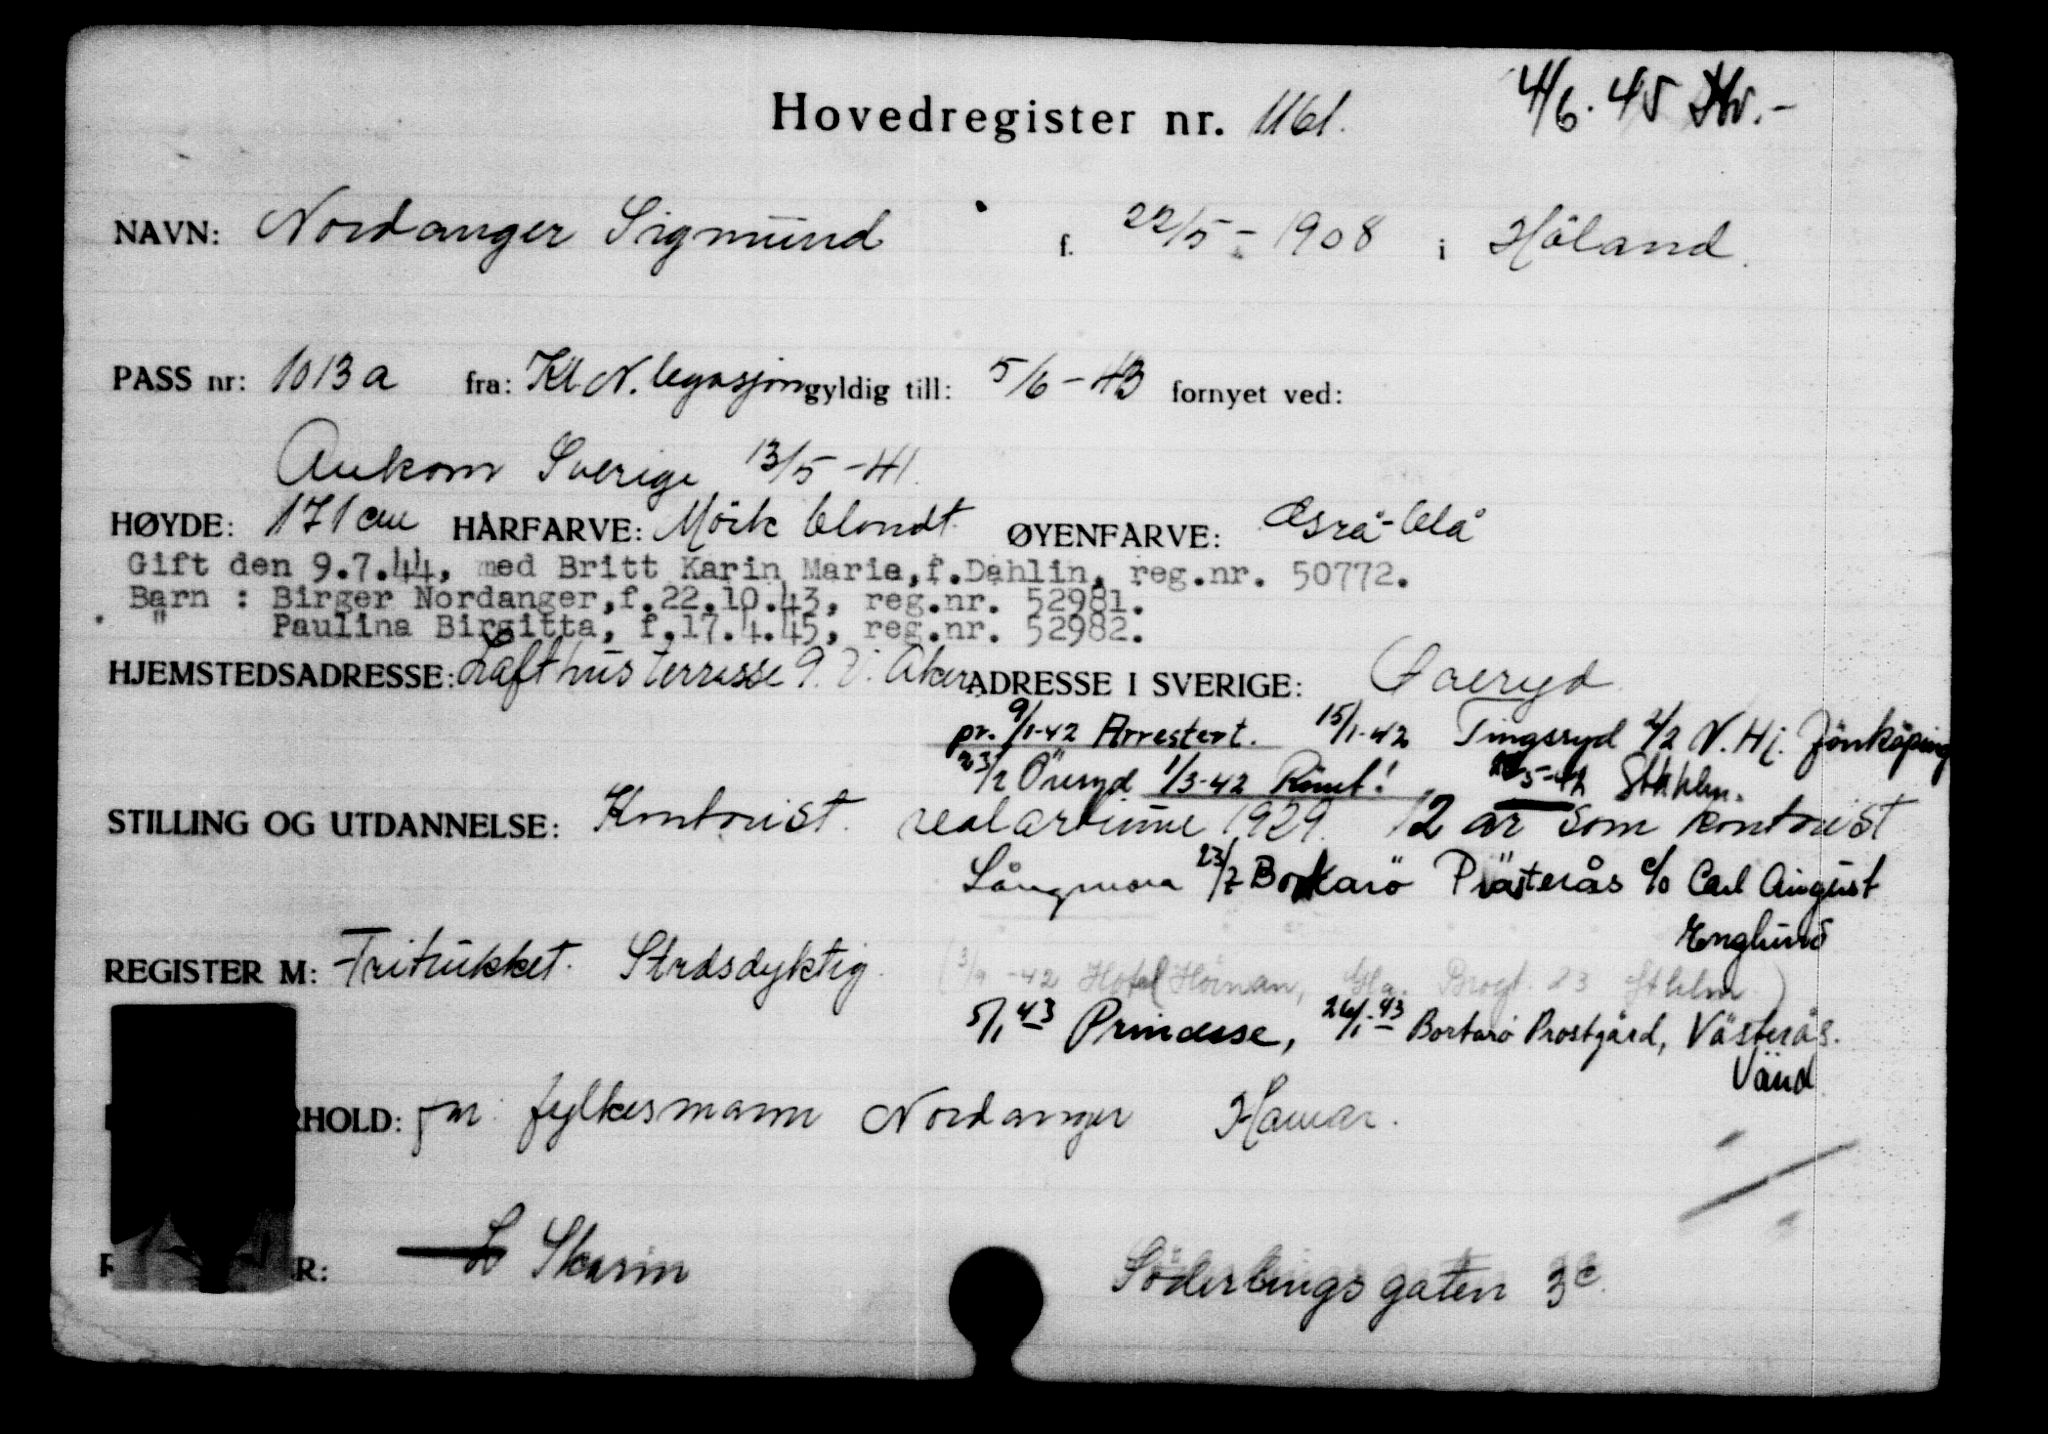 Hovedregister nr. 1161. 4/6.45
NAVN: Nordanger Sigmund f. 22/5-1908 i Höland.
PASS nr: 1013a fra: Kgl N. legasjon gyldig till: 5/6-43 fornyet ved:
Ankom Sverige 13/5-41.
HØYDE: 171 cm HÅRFARVE: Mörk blondt. ØYENFARVE: Grå-blå
Gift den 9.7.44, med Britt Karin Marie,f.Dahlin, reg.nr. 50772.
Barn : Birger Nordanger,f.22.10.43, reg.nr. 52981.
" Paulina Birgitta, f.17.4.45, reg.nr. 52982.
HJEMSTEDSADRESSE: Lofthus terrasse 9. V. Aker. ADRESSE I SVERIGE: Öreryd.
pr. 9/1-42 Arrestert. 15/1-42 Tingsryd 2/2 N.Hj. Jönköping
23/2 Öreryd 1/3-42 Römt! Sthlm.
STILLING OG UTDANNELSE: Kontorist. realartium 1929. 12 år som kontorist
Långmora 23/7 Borkarö Prästerås c/o Carl August
Englund
REGISTER M: Fritukket. Strdsdyktig.
(3/9-42 Hotel Hörnan, Brogt. 23 Sthlm.)
5/1 43 Prinsesse, 26/1-43 Bortarö Prostgård, Västerås.
Vänd
RHOLD: fylkesmann Nordanger Hamar.
R: Skarin Söderlingsgaten 3c.